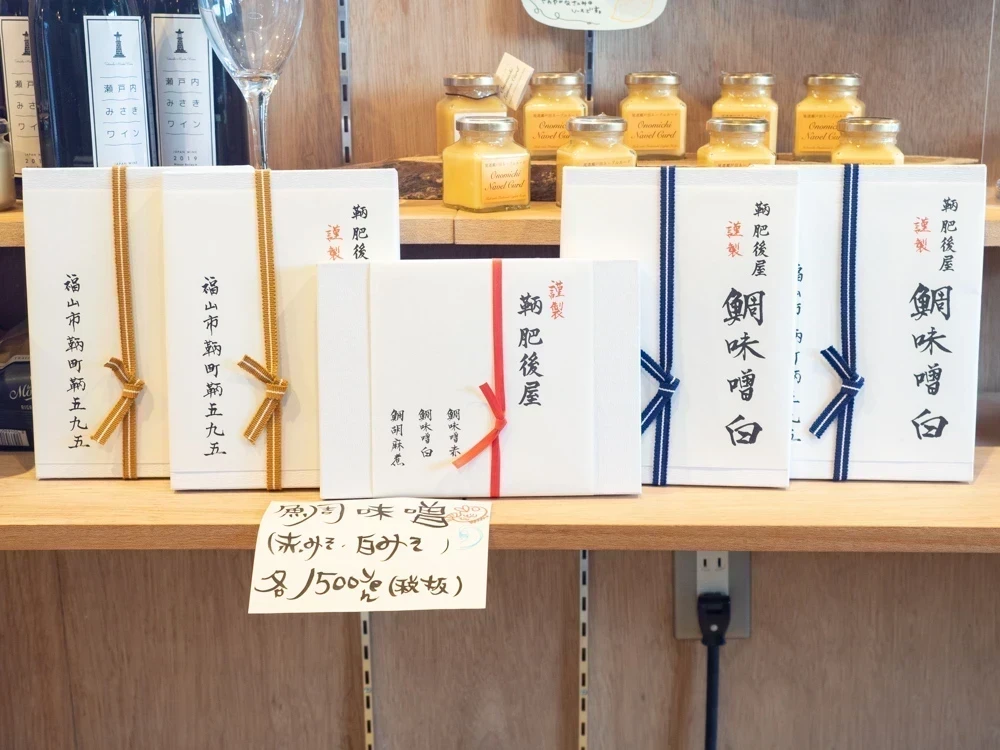 瀬戸内
みさき
ワイン
JAPAN WINE
2019
瀬戸内
みさき
ワイン
JAPAN WINE
2019
Onomichi
Navel Curd
Onomichi
Navel Curd
Onomichi
Navel Curd
福山市鞆町鞆五九五
鞆肥後
謹製
福山市鞆町鞆五九五
謹製
鞆肥後屋
鯛味噌赤
鯛味噌白
鯛胡麻煮
鞆肥後屋
謹製
鯛味噌白
鞆肥後屋
謹製
鯛味噌白
鯛味噌
(赤みそ・白みそ)
各1500yen(税抜)